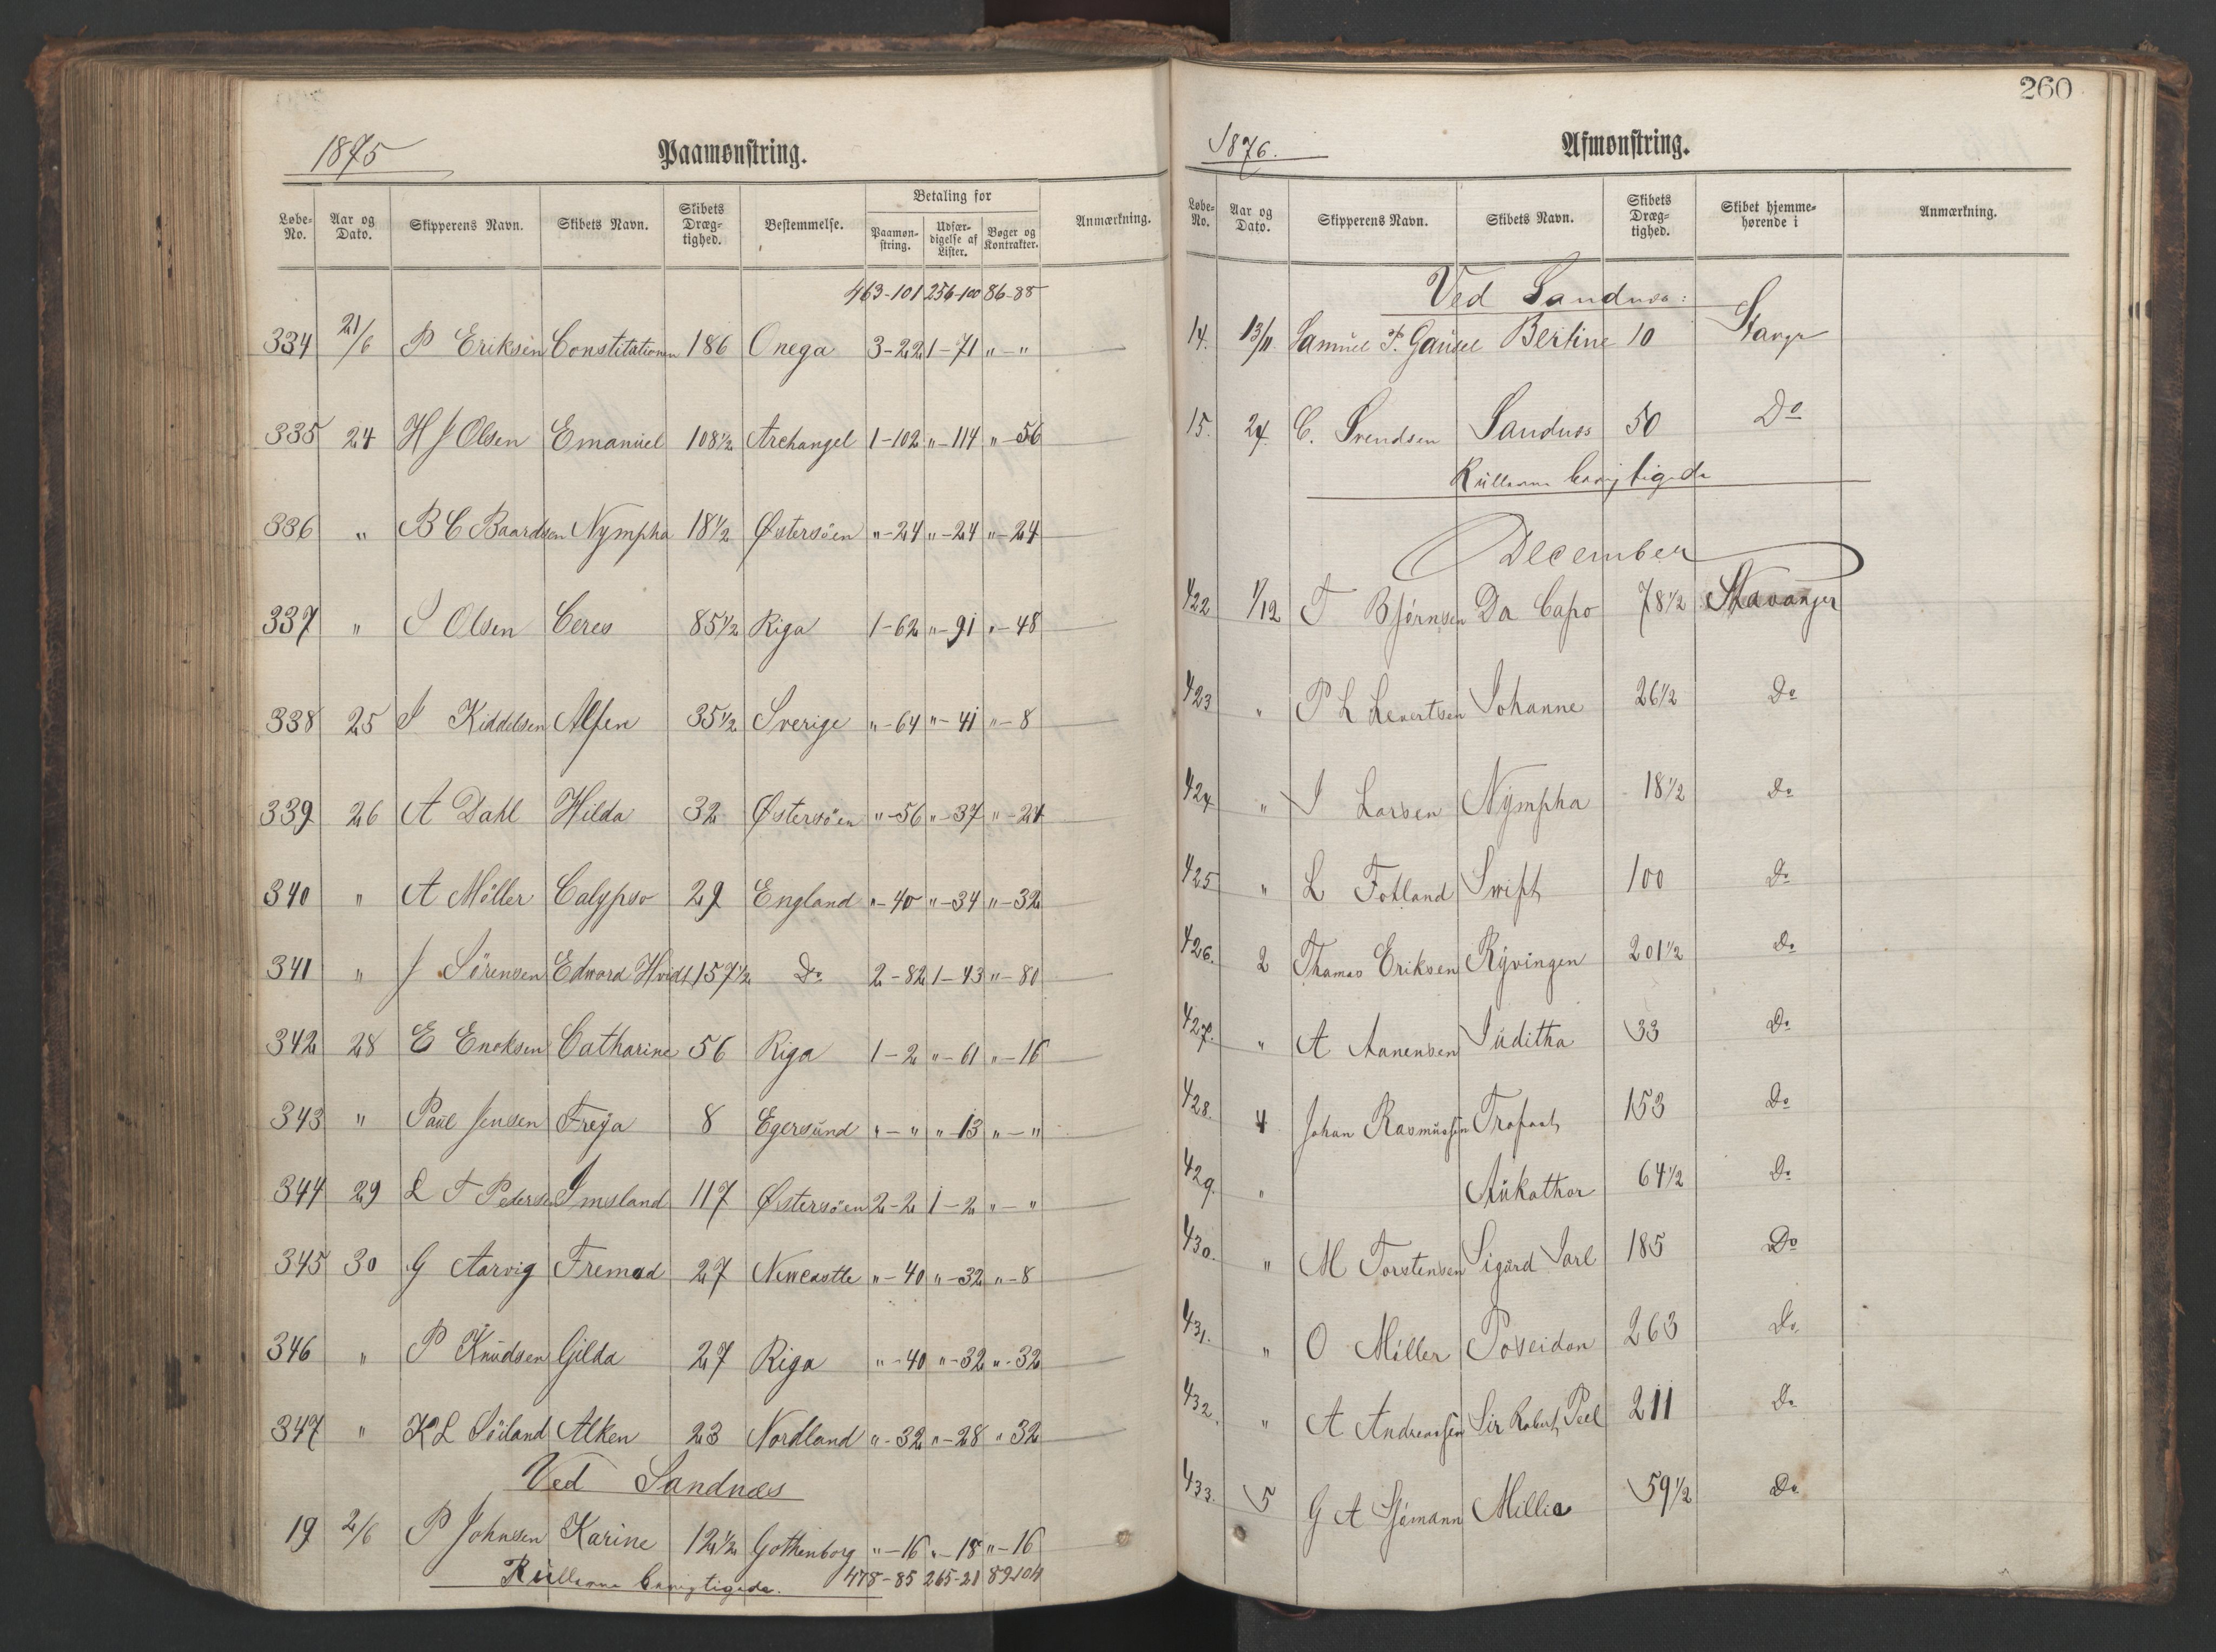 1875 Paamønstring.
Løbe-No. Aar og Dato. Skipperens Navn. Skibets Navn. Skibets Dræg-tighed. Bestemmelse. Betaling for Paamøn-string. Udfær-digelse af Lister. Bøger og Kontrakter. Anmærkning.
463-101 256-100 86-88
334 21/6 P Eriksen Constitutionen 186 Onega 3-22 1-71 "-"
335 24 H J Olsen Emanuel 108 1/2 Archangel 1-102 "-114 "-56
336 " B C Baardsen Nympha 18 1/2 Østersöen "-24 "-24 "-24
337 " S Olsen Ceres 85 1/2 Riga 1-62 "-91 "-48
338 25 J Kiddelsen Alfen 35 1/2 Sverige "-64 "-41 "-8
339 26 A Dahl Hilda 32 Østersöen "-56 "-37 "-24
340 " A Möller Calypso 29 England "-40 "-34 "-32
341 " J Sörensen Edward Hvidt 157 1/2 Do 2-82 1-43 "-80
342 28 E Enoksen Catharine 56 Riga 1-2 "-61 "-16
343 " Paul Jensen Freya 8 Egersund "-" "-13 "-"
344 29 L T Pedersen Imsland 117 Østersöen 2-2 1-2 "-"
345 30 G Aarvig Fremad 27 Newcastle "-40 "-32 "-8
346 " P Knudsen Gilda 27 Riga "-40 "-32 "-32
347 " K L Söiland Alken 23 Nordland "-32 "-28 "32
Ved Sandnæs
19 2/6 P Johnsen Karine 12 1/2 Gothenborg "-16 "-18 "-16
Rullerne 478-85 265-21 89104
260
1876. Afmønstring.
Løbe-No. Aar og Dato. Skipperens Navn. Skibets Navn. Skibets Dræg-tighed. Skibet hjemme-hørende i Anmærkning.
Ved Sandnæs:
14. 13/11. Samuel P. Gausel Bertine 10 Stavgr
15. 24. C. Svendsen Sandnæs 50 Do
Rullerne
December
422 1/12 T Bjørnsen Da Capo 78 1/2 Stavanger
423 " P L Levertsen Johanne 26 1/2 Do
424 " J Larsen Nympha 18 1/2 Do
425 " L Fotland Swift 100 Do
426. 2 Thomas Eriksen Ryvingen 201 1/2 Do
427. " A Aanensen Juditha 33 Do
428. 4 Johan Rasmussen Trofast 153 Do
429. " Aukathor 64 1/2 Do
430. " M Torstensen Sigurd Jarl 185 Do
431. " O Miller Poseidon 263 Do
432. " A Andreassen Sir Robert Peel 211 Do
433. 5 G A Sjømann Millie 59 1/2 Do